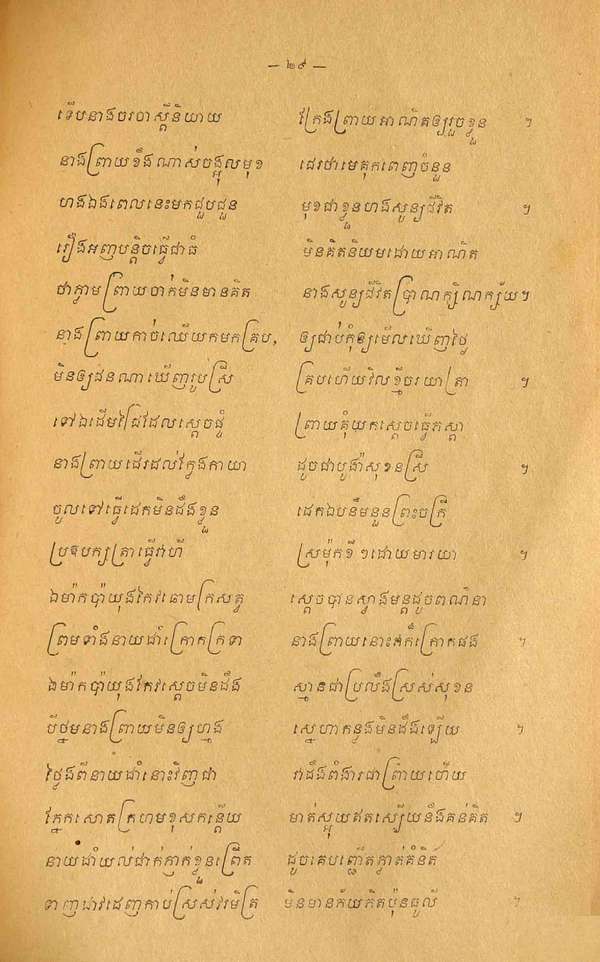 — ២៩ —
ទើបនាងចរចាស្តីនិយាយ ក្រែងព្រាយអាណិតឲ្យរួចខ្លួន ៗ
នាងព្រាយខឹងណាស់ចង្អុលមុខ ជេរថាមេតុកពេញចំនួន
ហងឯងពេលនេះមកជួបជួន មុខជាខ្លួនហងសូន្យជីវិត ៗ
រឿងអញបន្តិចធ្វើជាធំ មិនគិតនិយមដោយអាណិត
ថាភ្លាមព្រាយចាក់មិនមានគិត នាងសូន្យជីវិតប្រាណក្សិណក្ស័យ។
នាងព្រាយកាច់ឈើយកមកគ្រប, ឲ្យជាប់កុំឲ្យមើលឃើញថ្ងៃ
មិនឲ្យជនណាឃើញរូបស្រី គ្របហើយវិលខ្មីចរយាត្រា ៗ
ទៅឯដើមជ្រៃដែលស្តេចផ្ទំ ព្រាយគុំយកស្តេចធ្វើភស្តា
នាងព្រាយដើរដល់ក្នែងកាយា ដូចជាបូង៉ាសុខនស្រី ៗ
ចូលទៅធ្វើដេកមិនដឹងខ្លួន ដេកឯបនឹមនួនព្រះចក្រី
ស្រម៉ុកខឺ ៗ ដោយមារយា ៗ
ឯម៉ាក់ប៉ាយុងកែវឆោមក្រសត្វ ស្តេចបានស្វាងមន្តដូចពណ៌នា
ព្រមទាំងនាយដាំក្រោកក្រទា នាងព្រាយនោះក៏ក្រោកផង ៗ
ឯម៉ាក់ប៉ាយុងកែវស្តេចមិនដឹង ស្មានជាប្រលឹងស្រស់សុខន
បីថ្នមនាងព្រាយមិនឲ្យហ្មង ស្នេហាកន្លងមិនដឹងឡើយ ៗ
ថ្លែងពីនាយដាំនោះវិញជា វាដឹងពំងារជាព្រាយហើយ
ភ្នែកសោតក្រហមខុសកន្លើយ មាត់ស្អុយឥតស្បើយនឹងគន់គិត ៗ
នាយដាំយល់ជាក់ភ្ញាក់ខ្លួនព្រើត ដូចគេបញ្ឆើតភ្លាត់គំនិត
ទាញដាវដេញកាប់ស្រស់វរមិត្រ មិនមានភ័យភិតប៉ុនធូលី ៗ